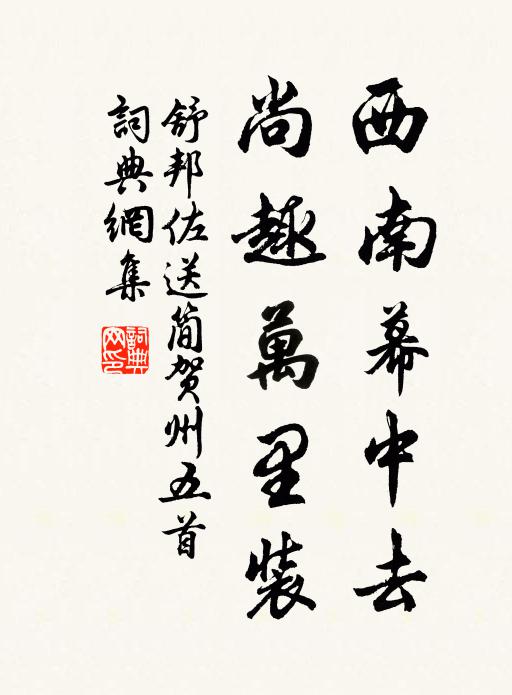 西南幕中去
尚趣萬里裝
舒邦佐送简贺州五首
詞典網集
詞典网印